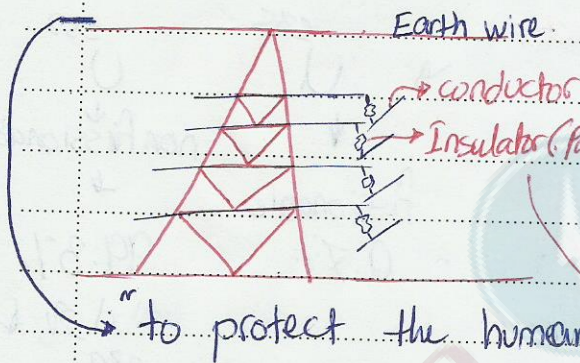 Earth wire.
conductor
Insulator
"to protect the human